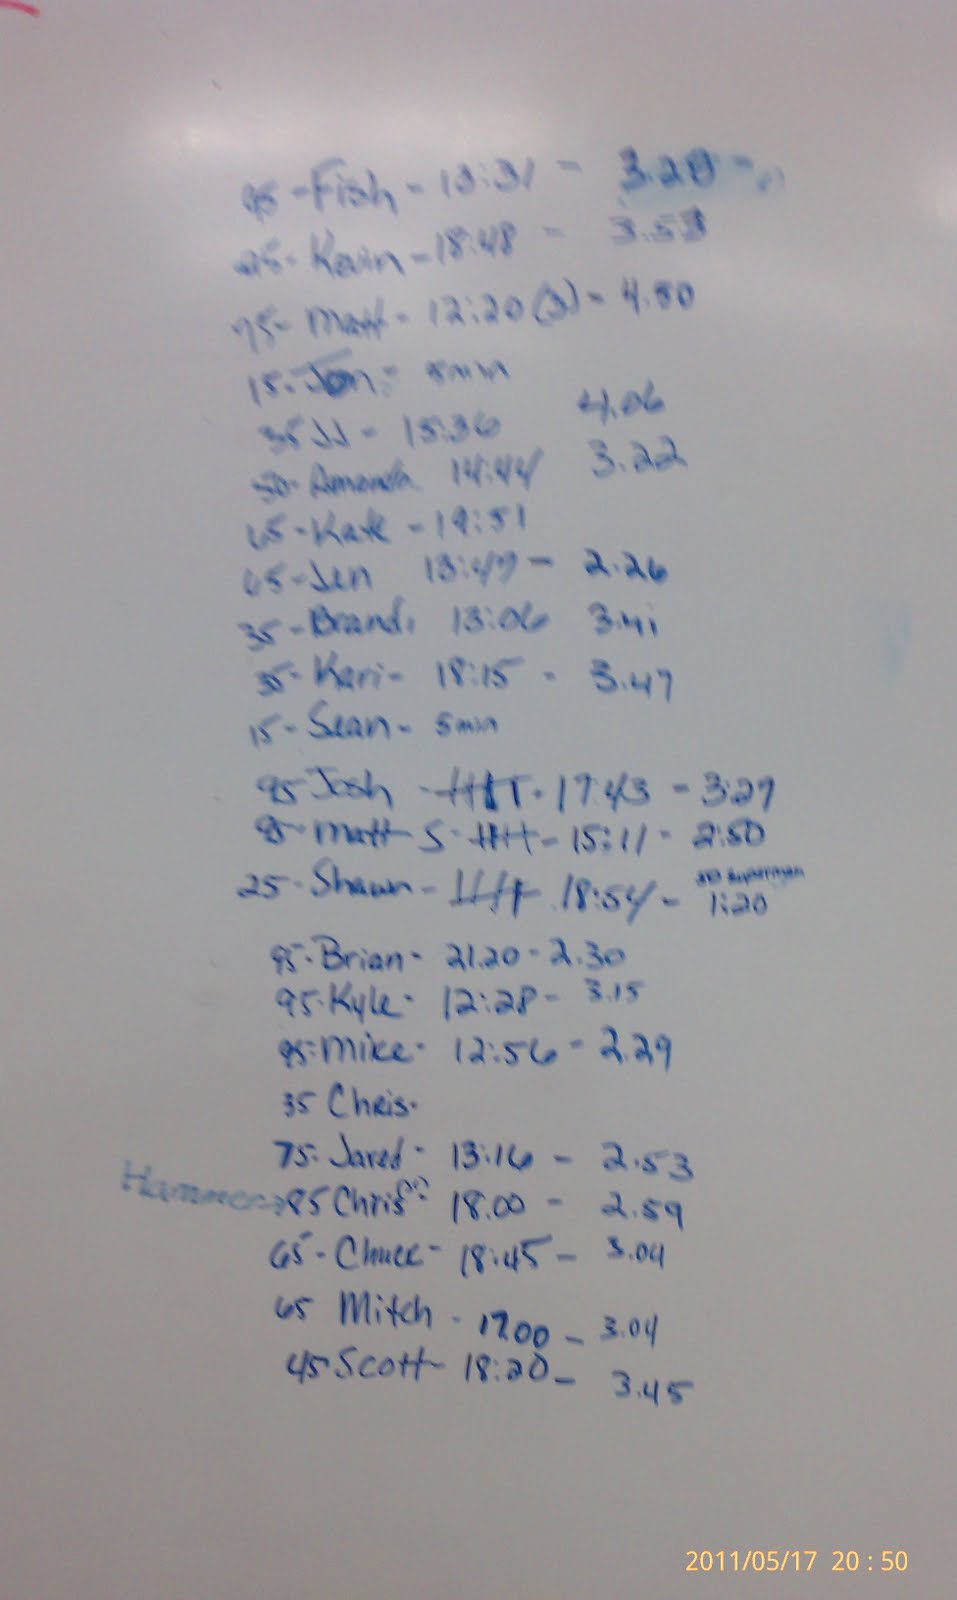 95-Fish - 13:31 - 3.28 -
25- Kevin - 18:48 - 3.53
75- Matt - 12:20 (3) - 4.50
15. Jon - 5min
35 JJ - 15:36 4.06
50- Amanda 14:44 3.22
65-Kate - 19:51
65-Jen 13:49 - 2.26
35-Brandi 13:06 3.41
35-Keri- 18:15 - 3.47
15- Sean - 5min
95 Josh - 17:43 - 3:27
95- Matt S - 15:11 - 2:50
25- Shawn - 18:54 - 1:20
95-Brian- 21.20 - 2.30
95-Kyle- 12:28- 3.15
95-Mike- 12:56 - 2.29
35 Chris-
75- Jared - 13:16 - 2.53
Hammer 85 Chris 18.00 - 2.59
65- Chuck- 18.45 - 3.04
65 Mitch - 17.00 - 3.04
45 Scott - 18:20 - 3.45
2011/05/17 20:50